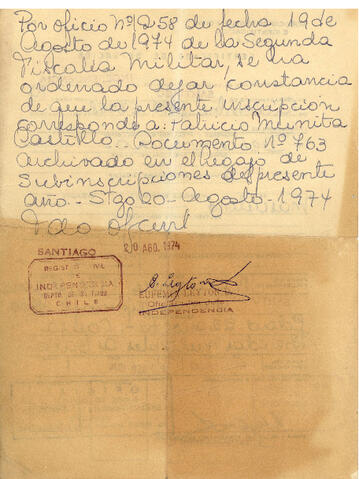 Por oficio Nº 258 de fecha 19 de
Agosto de 1974 de la Segunda
Fiscalía Militar, se ha
ordenado dejar, constancia
de que la presente inscripción
corresponde a: Patricio Munita
Castillo.- Documento Nº 763
archivado en el Regtro de
Subinscripciones del presente
año.- Stgo 20- Agosto- 1974
20 AGO. 1974
SANTIAGO
REGISTRO CIVIL
E
INDEPENDENCIA
CHILE
E. Leyton
EUFEMIA LEYTON
INDEPENDENCIA